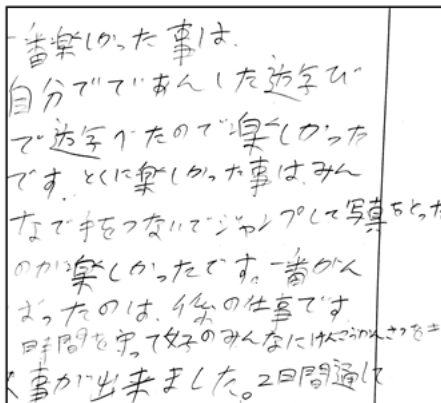 一番楽しかった事は、
自分でていあんした遊び
で遊べたので楽しかった
です。とくに楽しかった事は、みん
なで手をつないでジャンプして写真をとった
のが楽しかったです。一番がん
ばったのは、係の仕事です
時間を守って女子のみんなにけんこうかんさつをき
く事が出来ました。2日間通して